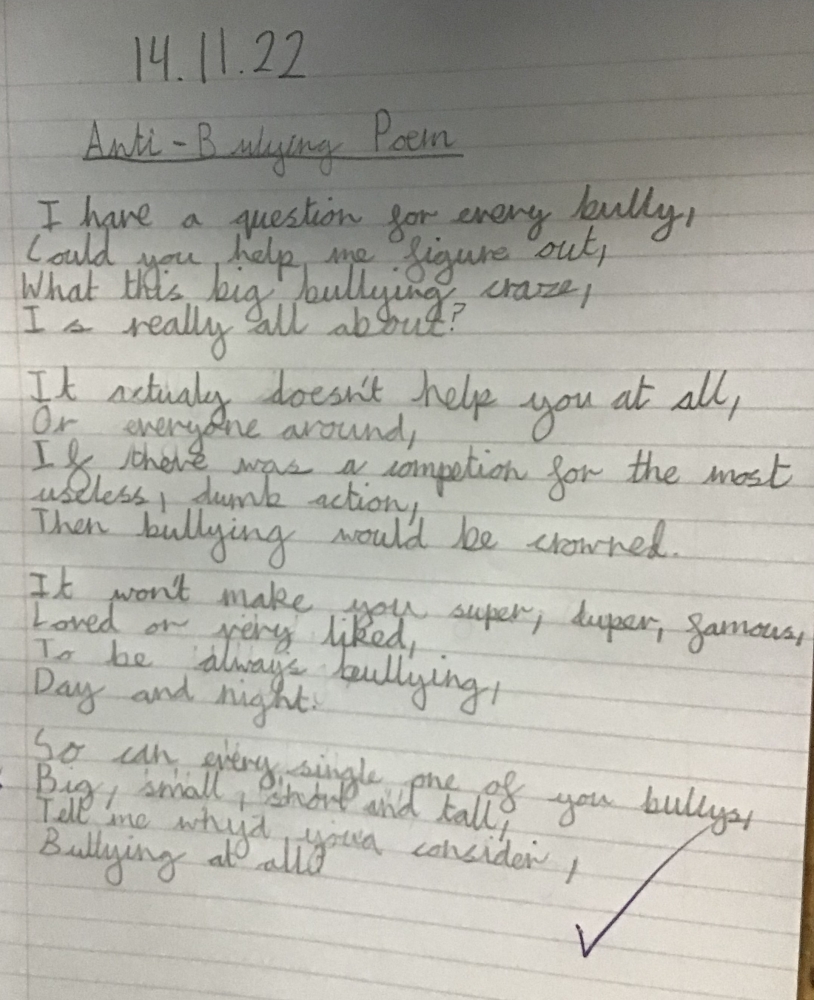 14.11.22
Anti-Bulying Poem
I have a question for every bully,
Could you help me figure out,
What this big bullying craze,
Is really all about?
It actualy doesn't help you at all,
Or everyone around,
If there was a competion for the most
useless, dumb action,
Then bullying would be crowned.
It won't make you super, duper, famous,
Loved or very liked,
To be always bullying,
Day and night.
So can every single one of you bullys,
Big, small, short and tall,
Tell me why'd you'd consider,
Bullying at all?